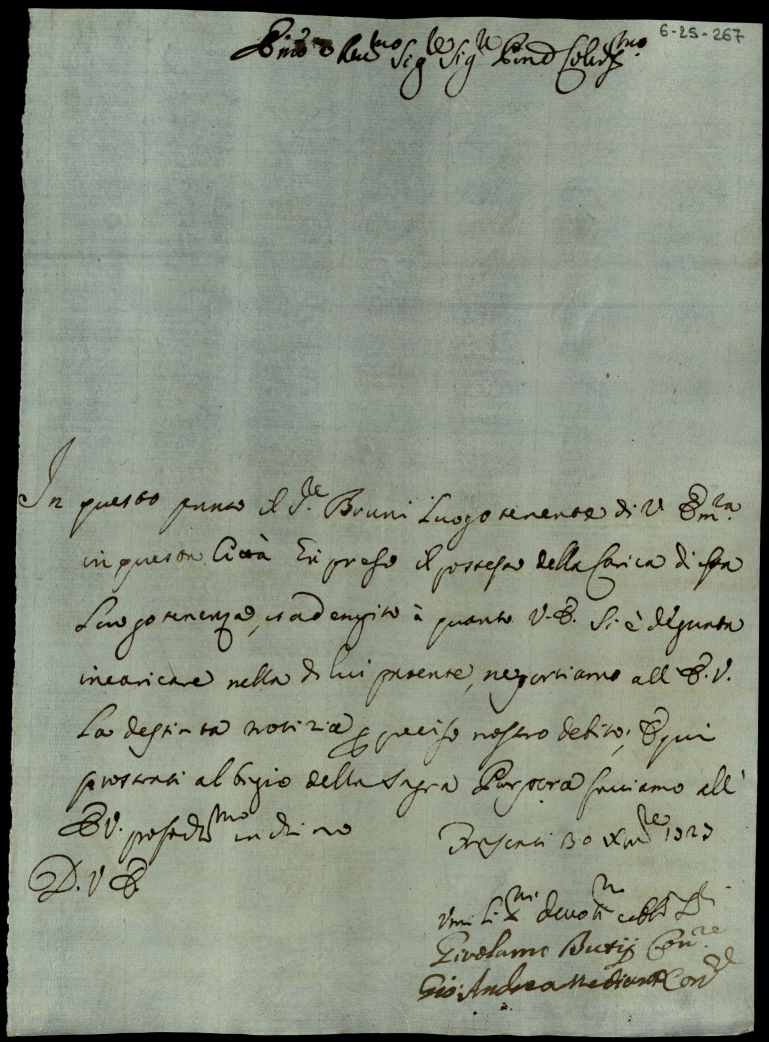 6-25-267
Em.º e Reu.mo Sig.re Sig.re Pnd Col.mo
In questo punto il S.re Bruni Luogotenente di V. Em.za
in questa Città hà preso il possesso della Carica di sta
Luogotenenza, et adempito à quanto V. E. si è degnata
incaricare nella di lui patente, ne portiamo all E. V.
La destinta notizia p preciso nostro debito; E qui
prostrati al bagio della Sagra Porpora facciamo all'
E V. profond.mo inchino
D. V E
Vmiliss.mi deuot.mi obbl.
Girolamo Butij Con.re
Gio: Andrea Con.re